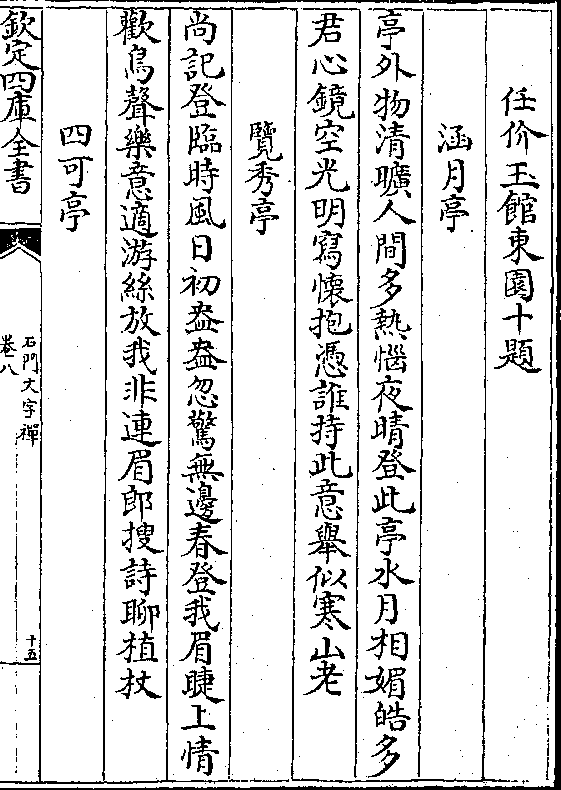 任价玉館東園十題
涵月亭
亭外物清曠人間多熱惱夜晴登此亭水月相媚皓多
君心鏡空光明寫懷抱憑誰持此意舉似寒山老
覽秀亭
尚記登臨時風日初盎盎忽驚無邊春登我眉睫上情
歡鳥聲樂意適游絲放我非連眉郎搜詩聊植杖
四可亭
欽定四庫全書
石門文字禪
卷八
十五